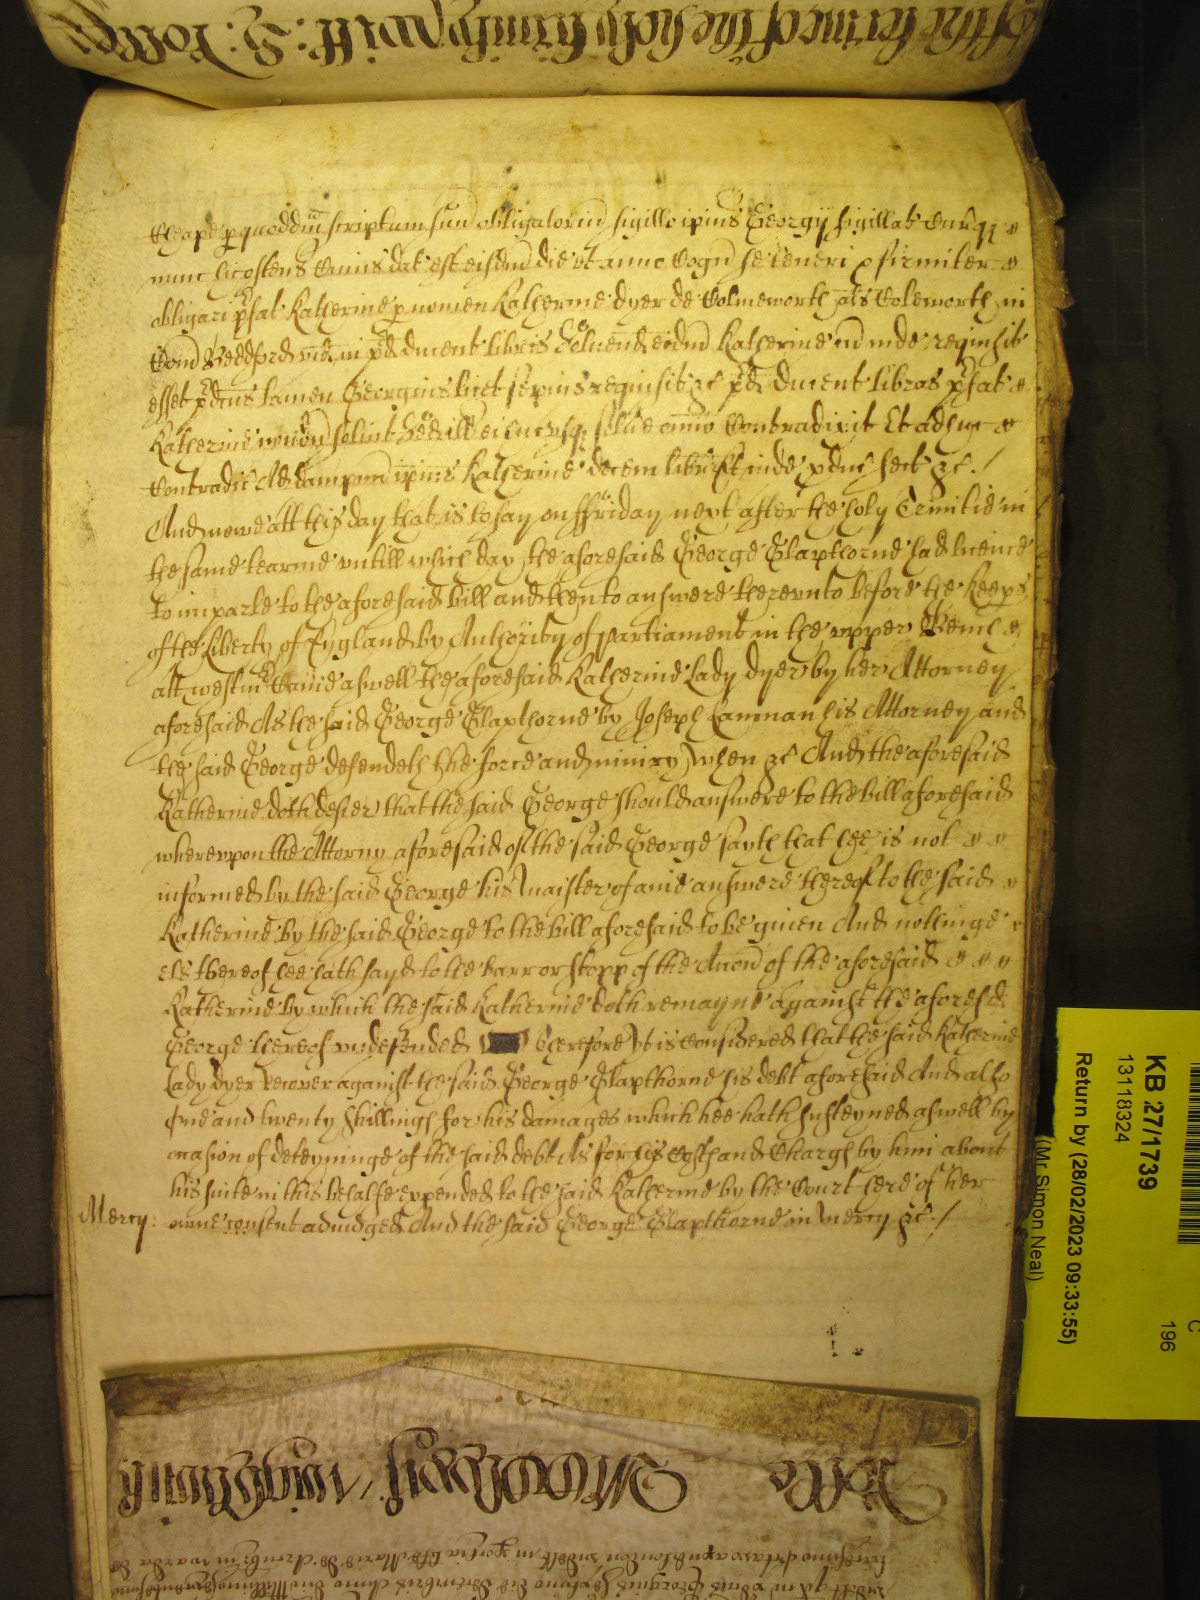 of the terme of the holy Trinity Witt: S: Rolle
Cheape p quoddm scriptum suu obligatoriu sigillo ipius Georgij sigillat Cur qz
nunc hic ostens cuius dat est eisdm die et anno Cogn se teneri & firmiter
obligari pfat Katherine p nomen Katherine Dyer de Colmeworth als Coleworth in
Com Bedford vid in pd ducent libris Solvend eidm Katherine cu inde requisit
esset pdcus tamen Georgius licet sepius requisit &c pd ducent libras pfat
Katherine nondu solvit Sed ill ei huc usq solvere omnio Contradixit Et adhuc
Contradic Ad dampnu ipius Katherine decem libr Et inde pduc sect &c./
And nowe att this day that is to say on ffriday next after the holy Trinitie in
the same tearme untill which day the aforesaid George Glapthorne had licence
to imparle to the aforesaid bill and then to answere thereunto before the Keeps
of the Liberty of England by Authority of Parliament in the upper Bench
att Westm Came aswell the aforesaid Katherine Lady Dyer by her Attorney
aforesaid As the said George Glapthorne by Joseph Lamman his Attorney and
the said George defendeth the force and iniury when &c And the aforesaid
Katherine doth desier that the said George should answere to the bill aforesaid
whereupon the Attorny aforesaid of the said George sayth that hee is not
informed by the said George his Maister of anie answere thereof to the said
Katherine by the said George to the bill aforesaid to be given And nothinge
els thereof hee hath sayd to the barr or stopp of the Accon of the aforesaid
Katherine by which the said Katherine doth remayne against the aforesd
George thereof undefended therefore yt is Considered that the said Katherine
Lady Dyer Recover against the said George Glapthorne his debt aforesaid And also
One and twenty Shillings for his damages which hee hath susteyned aswell by
occasion of deteyninge of the said debt As for his Costs and Charges by him about
his suite in this behalfe expended to the said Katherine by the Court here of her
Mercy: owne consent adiudged And the said George Glapthorne in Mercy &c./
KB 27/1739
13118324
Return by (28/02/2023 09:33:55)
(Mr Simon Neal)
C
196
Rolle